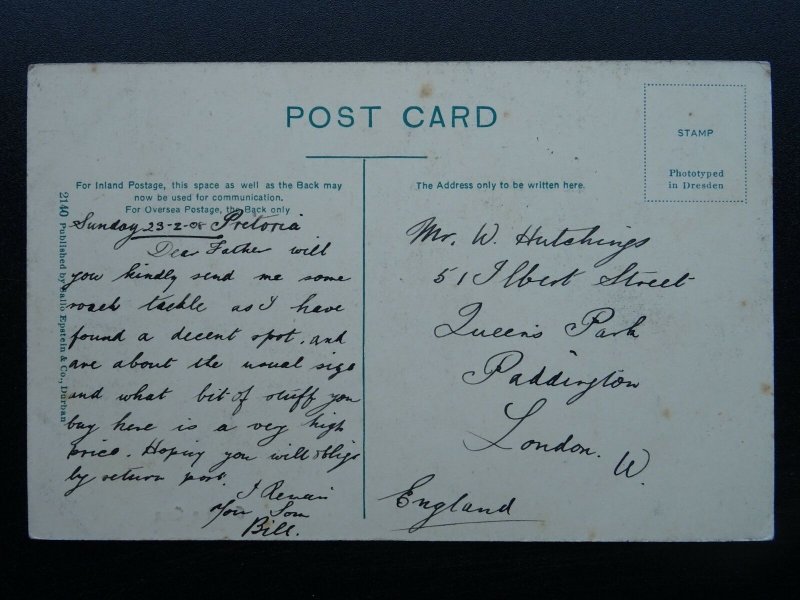 POST CARD
STAMP
Phototyped
in Dresden
For Inland Postage, this space as well as the Back may
now be used for communication.
For Oversea Postage, the Back only
The Address only to be written here.
2140 Published by Hallo Epstein & Co., Durban
Sunday 23-2-08 Pretoria
Dear Father will
you kindly send me some
roach tackle as I have
found a decent spot, and
are about the usual size
and what bit of stuff you
buy here is a very high
price. Hoping you will oblige
by return post.
I Remain
Your Son
Bill.
Mr. W. Hutchings
51 Ilbert Street
Queen's Park
Paddington
London. W.
England